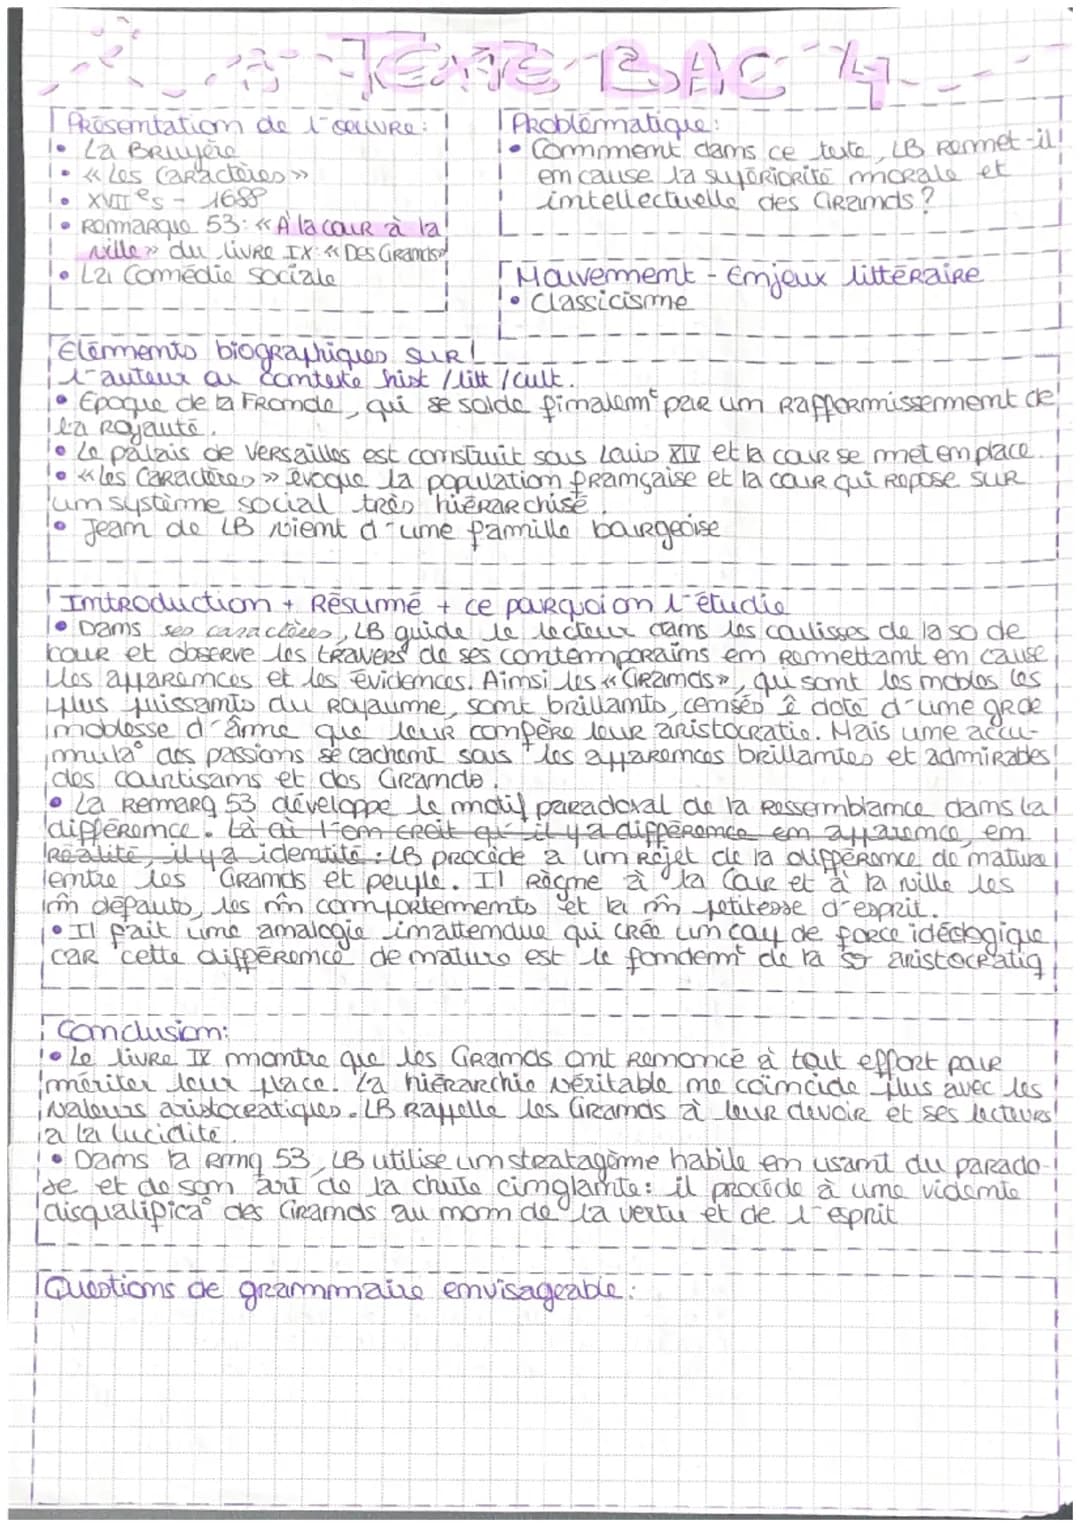 TEXTE BAC 4
Présentation de l'oeuvre:
• La Bruyère
• « Les Caractères »
• XVIIe s - 1688
• Remarque 53: « À la cour à la
ville » du livre IX « Des Grands »
• La Comédie sociale
Problématique:
• Comment dans ce texte, LB remet-il
en cause la supériorité morale et
intellectuelle des Grands ?
Mouvement - Enjeux littéraire
• Classicisme
Elements biographiques sur
l'auteur ou contexte hist / litt / cult.
• Epoque de la Fronde, qui se solde finalemt par un raffermissement de
la royauté.
• Le palais de Versailles est construit sous Louis XIV et la cour se met en place.
• « Les Caractères » évoque la population française et la cour qui repose sur
un système social très hiérarchisé.
• Jean de LB vient d'une famille bourgeoise
Introduction + Résumé + ce pourquoi on l'étudie
• Dans ses caractères, LB guide le lecteur dans les coulisses de la so de
cour et observe les travers de ses contemporains en remettant en cause
les apparences et les évidences. Ainsi les « Grands », qui sont les nobles les
plus puissants du Royaume, sont brillants, censés ê doté d'une grde
noblesse d'âme que leur compère leur aristocratie. Mais une accu-
mula° des passions se cachent sous les apparences brillantes et admirables
des courtisans et des Grands.
• La remarq 53 développe le motif paradoxal de la ressemblance dans la
différence. Là où l'on croit qu'il y a différence en apparence, en
réalité, il y a identité : LB procède à un rejet de la différence de nature
entre les Grands et peuple. Il règne à la Cour et à la ville les
m̂ défauts, les m̂ comportements et la m̂ petitesse d'esprit.
• Il fait une analogie inattendue qui crée un coup de force idéologique,
car cette différence de nature est le fondemt de la so aristocratiq
Conclusion:
• Le livre IX montre que les Grands ont renoncé à tout effort pour
mériter leur place. La hiérarchie véritable ne coïncide plus avec les
valeurs aristocratiques. LB rappelle les Grands à leur devoir et ses lecteurs
à la lucidité.
• Dans la rmq 53, LB utilise un stratagème habile en usant du parado-
xe et de son art de la chute cinglante: il procède à une vidente
disqualifica° des Grands au nom de la vertu et de l'esprit
Questions de grammaire envisageable: